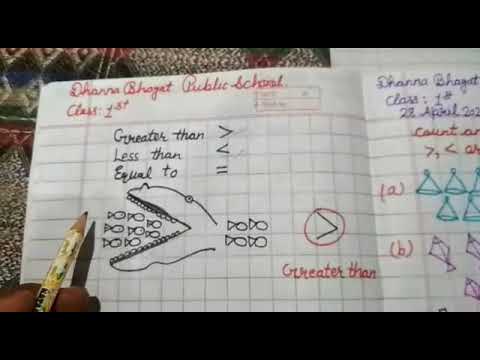 Dhanna Bhagat Public School.
Class: 1st
Greater than >
Less than <
Equal to =
>
Greater than
Dhanna Bhagat
Class: 1st
28 April 202
Count an
>, < or
(a)
(b)